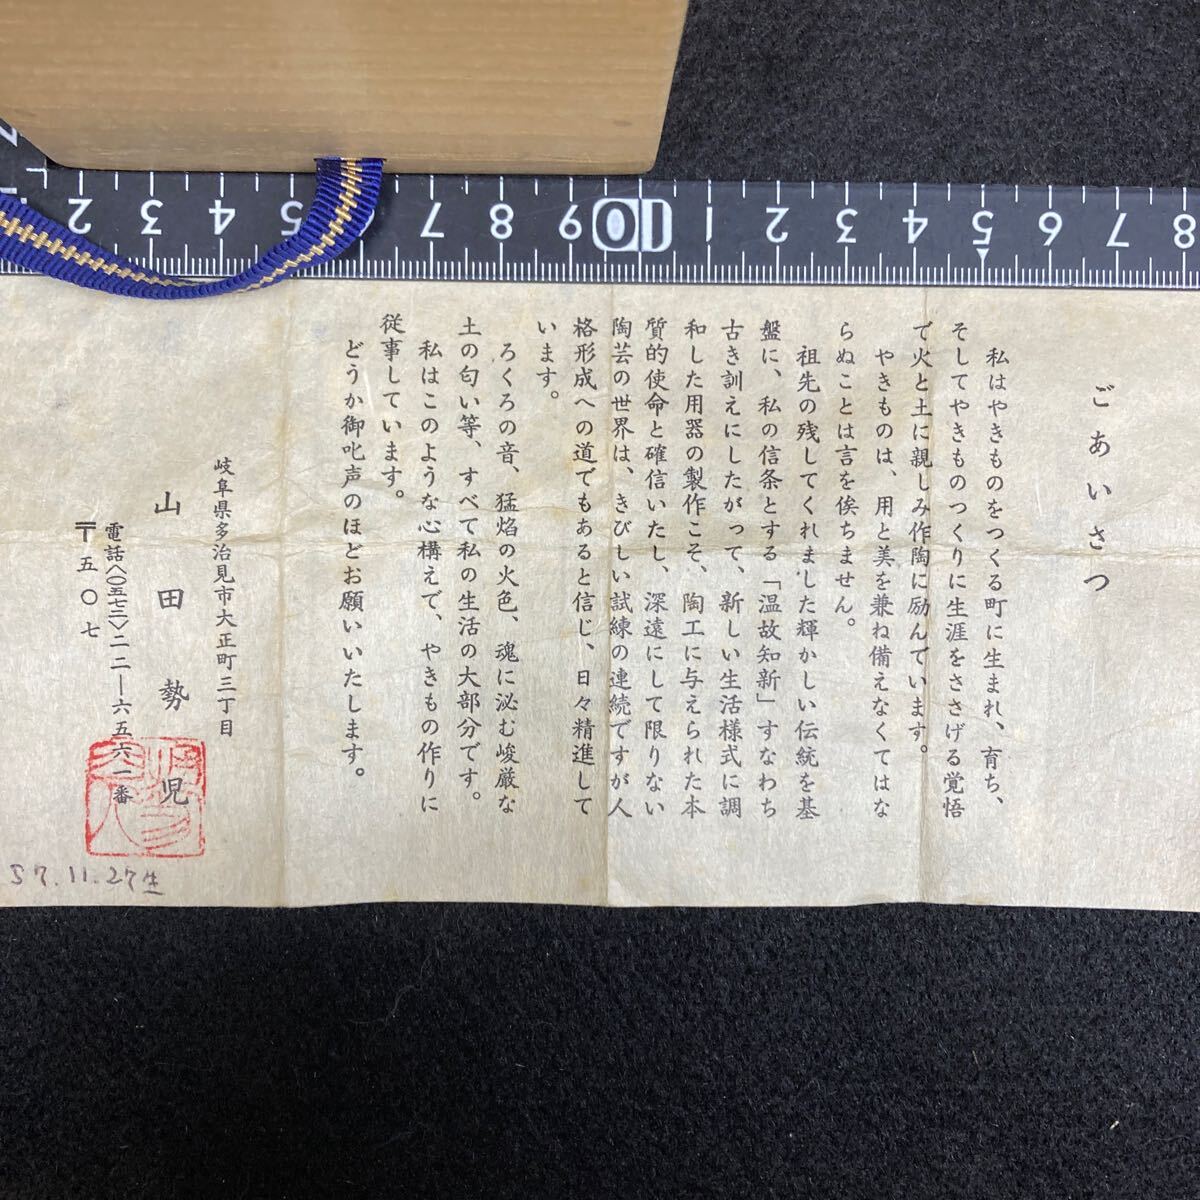 ごあいさつ
私はやきものをつくる町に生まれ、育ち、
そしてやきものつくりに生涯をささげる覚悟
で火と土に親しみ作陶に励んでいます。
やきものは、用と美を兼ね備えなくてはな
らぬことは言を俟ちません。
祖先の残してくれました輝かしい伝統を基
盤に、私の信条とする「温故知新」すなわち
古き訓えにしたがって、新しい生活様式に調
和した用器の製作こそ、陶工に与えられた本
質的使命と確信いたし、深遠にして限りない
陶芸の世界は、きびしい試練の連続ですが人
格形成への道でもあると信じ、日々精進して
います。
ろくろの音、猛焰の火色、魂に泌む峻厳な
土の匂い等、すべて私の生活の大部分です。
私はこのような心構えで、やきもの作りに
従事しています。
どうか御叱声のほどお願いいたします。
岐阜県多治見市大正町三丁目
山田勢児
電話〈〇五七二〉二二―六五六一番
〒五〇七
57.11.27生
2 3 4 5 6 7 8 9 10 1 2 3 4 5 6 7 8